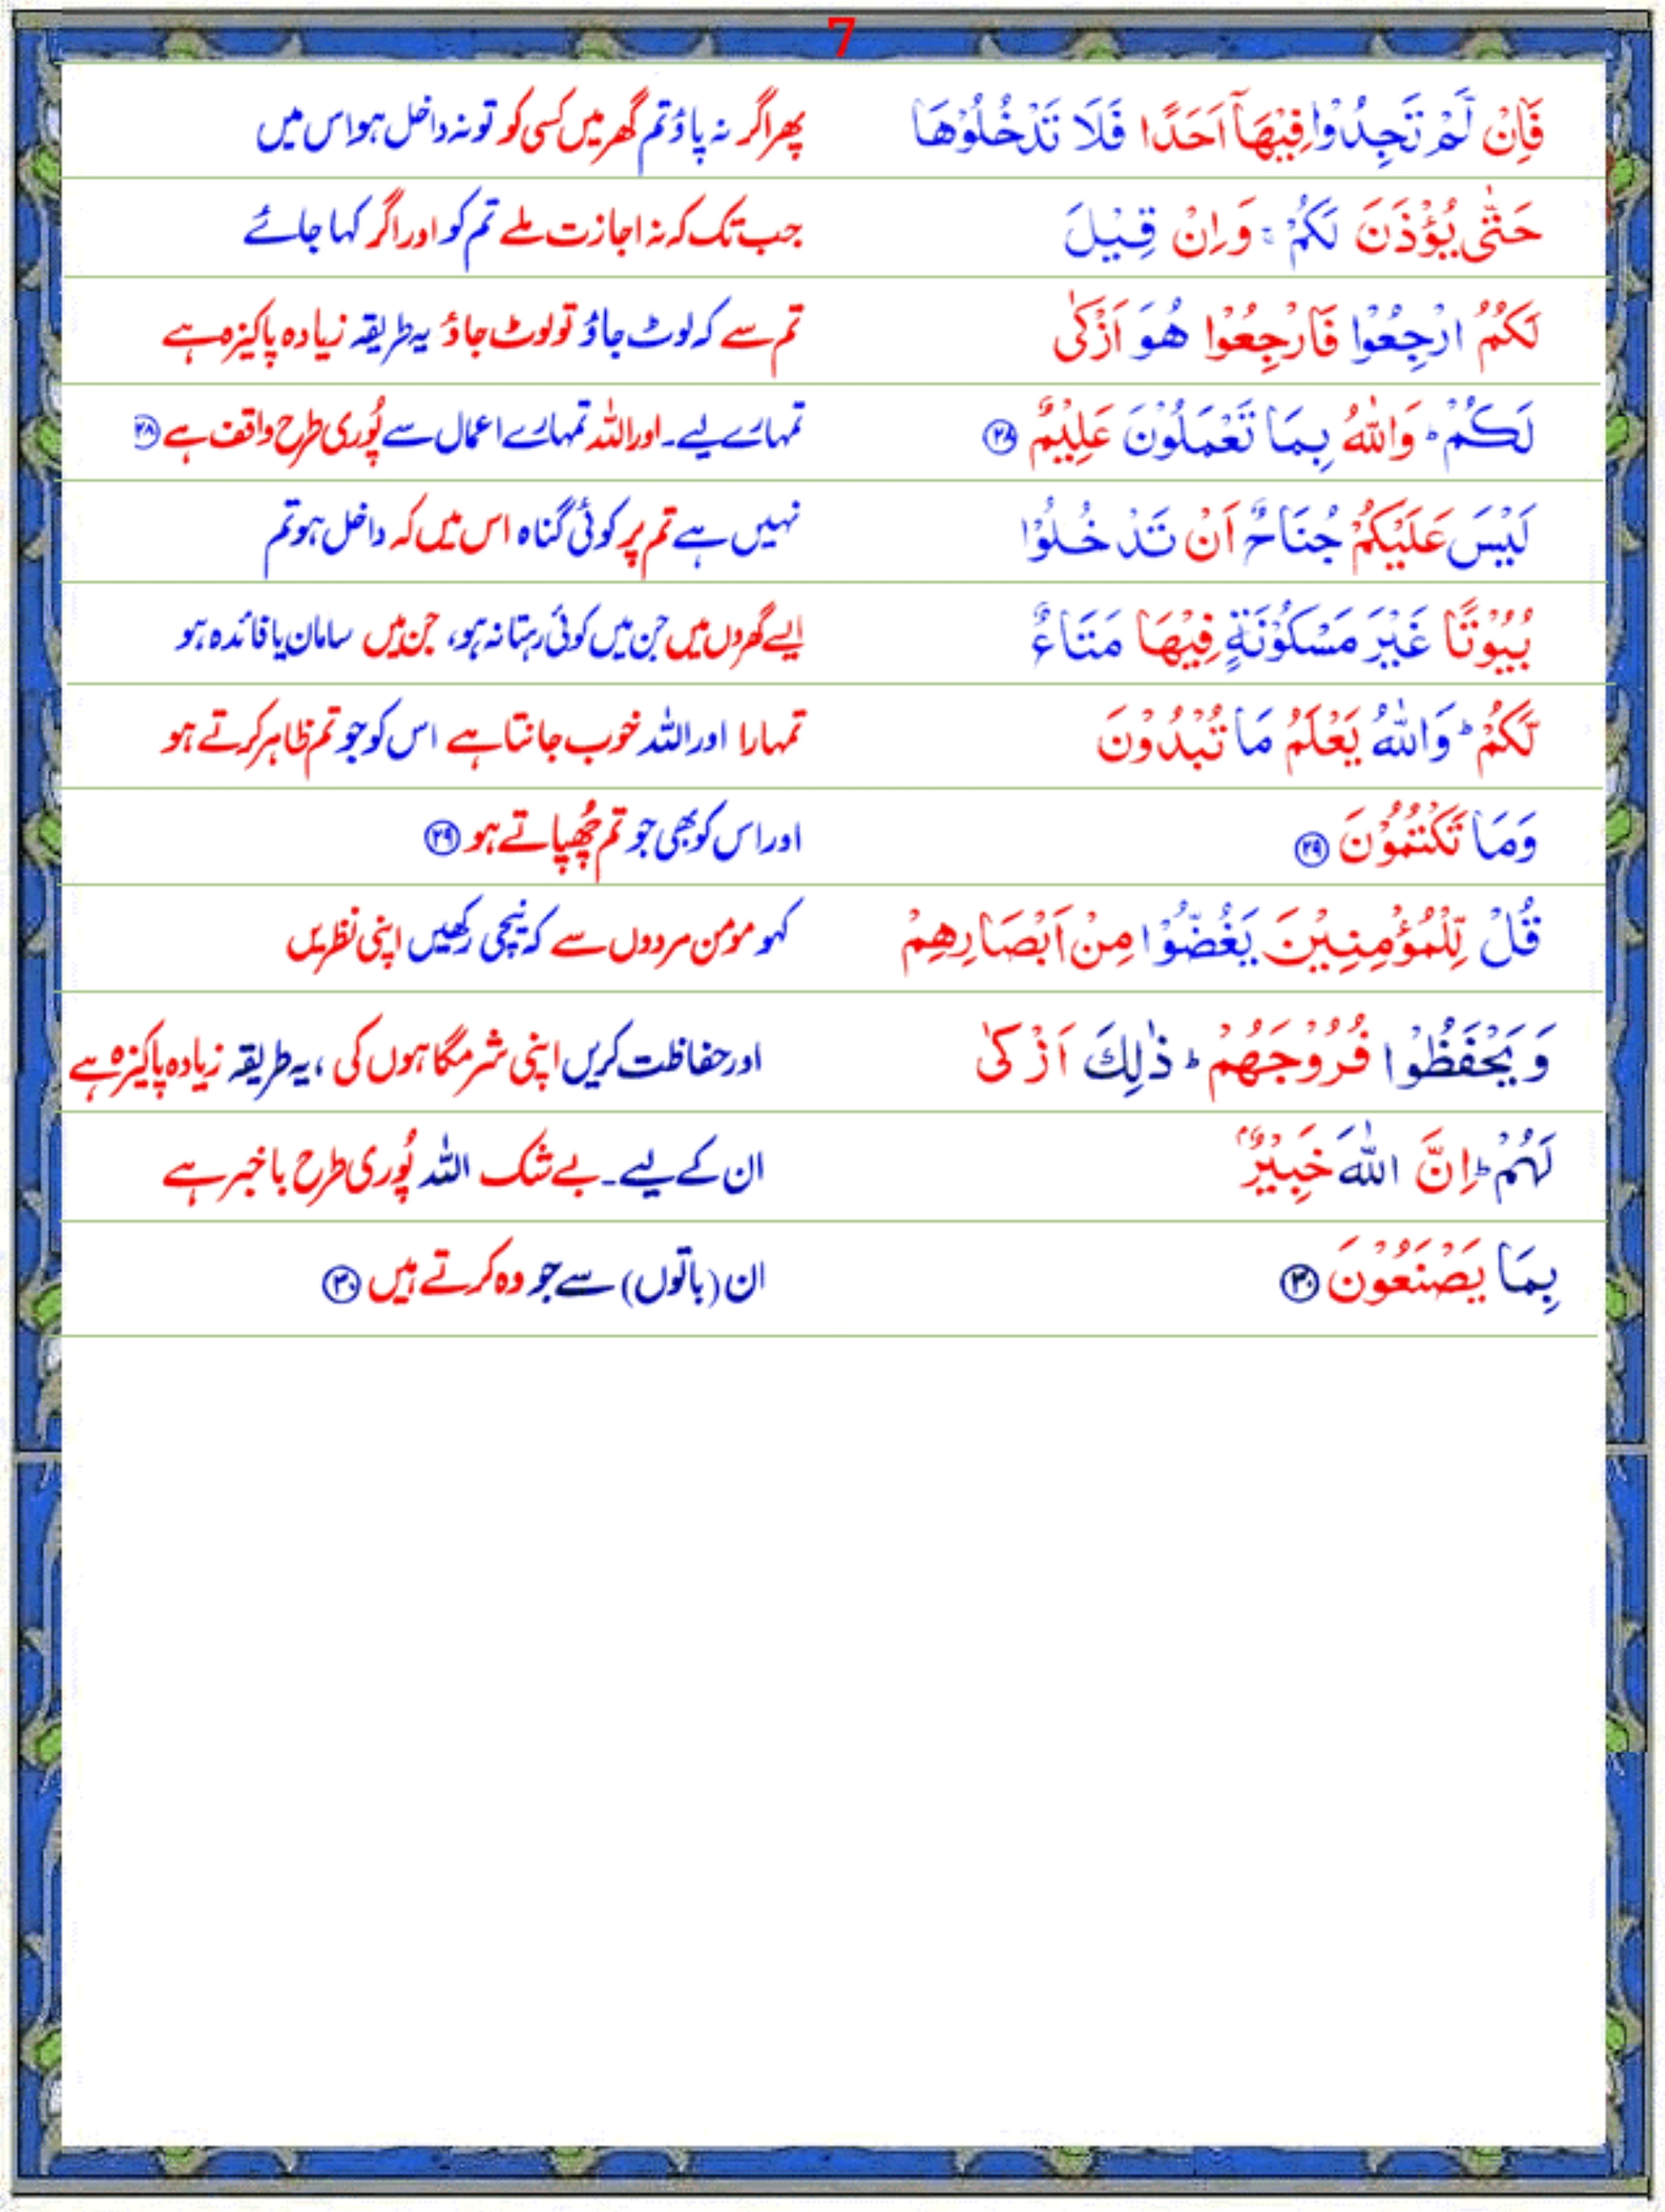 7
فَاِنْ لَّمْ تَجِدُوْا فِيْهَاۤ اَحَدًا فَلَا تَدْخُلُوْهَا پھراگر نہ پاؤ تم گھر میں کسی کو تو نہ داخل ہو اس میں
حَتّٰى يُؤْذَنَ لَكُمْ ۚ وَاِنْ قِيْلَ جب تک کہ نہ اجازت ملے تم کو اور اگر کہا جائے
لَكُمُ ارْجِعُوْا فَارْجِعُوْا هُوَ اَزْكٰى تم سے کہ لوٹ جاؤ تو لوٹ جاؤ یہ طریقہ زیادہ پاکیزہ ہے
لَكُمْ ؕ وَاللّٰهُ بِمَا تَعْمَلُوْنَ عَلِيْمٌ ﴿۲۸﴾ تمہارے لیے۔ اور اللہ تمہارے اعمال سے پُوری طرح واقف ہے ﴿۲۸﴾
لَيْسَ عَلَيْكُمْ جُنَاحٌ اَنْ تَدْخُلُوْا نہیں ہے تم پر کوئی گناہ اس میں کہ داخل ہو تم
بُيُوْتًا غَيْرَ مَسْكُوْنَةٍ فِيْهَا مَتَاعٌ ایسے گھروں میں جن میں کوئی رہتا نہ ہو، جن میں سامان یا فائدہ ہو
لَّكُمْ ؕ وَاللّٰهُ يَعْلَمُ مَا تُبْدُوْنَ تمہارا اور اللہ خوب جانتا ہے اس کو جو تم ظاہر کرتے ہو
وَمَا تَكْتُمُوْنَ ﴿۲۹﴾ اور اس کو بھی جو تم چُھپاتے ہو ﴿۲۹﴾
قُلْ لِّلْمُؤْمِنِيْنَ يَغُضُّوْا مِنْ اَبْصَارِهِمْ کہو مومن مردوں سے کہ نیچی رکھیں اپنی نظریں
وَيَحْفَظُوْا فُرُوْجَهُمْ ؕ ذٰلِكَ اَزْكٰى اور حفاظت کریں اپنی شرمگاہوں کی ، یہ طریقہ زیادہ پاکیزہ ہے
لَهُمْ ؕ اِنَّ اللّٰهَ خَبِيْرٌۢ ان کے لیے۔ بے شک اللہ پُوری طرح باخبر ہے
بِمَا يَصْنَعُوْنَ ﴿۳۰﴾ ان (باتوں) سے جو وہ کرتے ہیں ﴿۳۰﴾